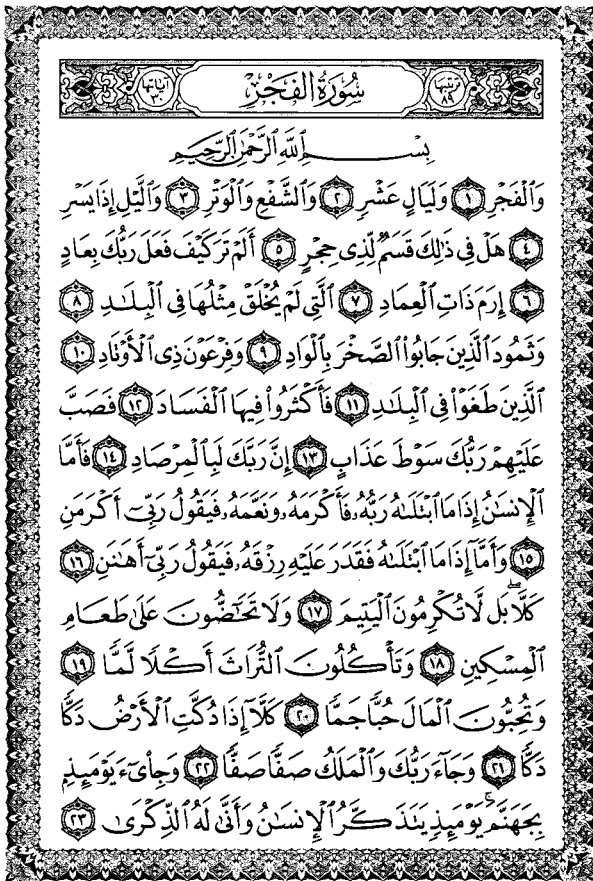 ترتيبها ٨٩ سُورَةُ الفَجْرِ آياتها ٣٠
بِسْمِ ٱللَّهِ ٱلرَّحْمَٰنِ ٱلرَّحِيمِ
وَٱلْفَجْرِ ١ وَلَيَالٍ عَشْرٍ ٢ وَٱلشَّفْعِ وَٱلْوَتْرِ ٣ وَٱلَّيْلِ إِذَا يَسْرِ
٤ هَلْ فِى ذَٰلِكَ قَسَمٌ لِّذِى حِجْرٍ ٥ أَلَمْ تَرَ كَيْفَ فَعَلَ رَبُّكَ بِعَادٍ
٦ إِرَمَ ذَاتِ ٱلْعِمَادِ ٧ ٱلَّتِى لَمْ يُخْلَقْ مِثْلُهَا فِى ٱلْبِلَٰدِ ٨
وَثَمُودَ ٱلَّذِينَ جَابُوا۟ ٱلصَّخْرَ بِٱلْوَادِ ٩ وَفِرْعَوْنَ ذِى ٱلْأَوْتَادِ ١٠
ٱلَّذِينَ طَغَوْا۟ فِى ٱلْبِلَٰدِ ١١ فَأَكْثَرُوا۟ فِيهَا ٱلْفَسَادَ ١٢ فَصَبَّ
عَلَيْهِمْ رَبُّكَ سَوْطَ عَذَابٍ ١٣ إِنَّ رَبَّكَ لَبِٱلْمِرْصَادِ ١٤ فَأَمَّا
ٱلْإِنسَٰنُ إِذَا مَا ٱبْتَلَىٰهُ رَبُّهُۥ فَأَكْرَمَهُۥ وَنَعَّمَهُۥ فَيَقُولُ رَبِّىٓ أَكْرَمَنِ
١٥ وَأَمَّآ إِذَا مَا ٱبْتَلَىٰهُ فَقَدَرَ عَلَيْهِ رِزْقَهُۥ فَيَقُولُ رَبِّىٓ أَهَٰنَنِ ١٦
كَلَّا ۖ بَل لَّا تُكْرِمُونَ ٱلْيَتِيمَ ١٧ وَلَا تَحَٰٓضُّونَ عَلَىٰ طَعَامِ
ٱلْمِسْكِينِ ١٨ وَتَأْكُلُونَ ٱلتُّرَاثَ أَكْلًا لَّمًّا ١٩
وَتُحِبُّونَ ٱلْمَالَ حُبًّا جَمًّا ٢٠ كَلَّآ إِذَا دُكَّتِ ٱلْأَرْضُ دَكًّا
دَكًّا ٢١ وَجَآءَ رَبُّكَ وَٱلْمَلَكُ صَفًّا صَفًّا ٢٢ وَجِا۟ىٓءَ يَوْمَئِذٍۭ
بِجَهَنَّمَ ۚ يَوْمَئِذٍ يَتَذَكَّرُ ٱلْإِنسَٰنُ وَأَنَّىٰ لَهُ ٱلذِّكْرَىٰ ٢٣